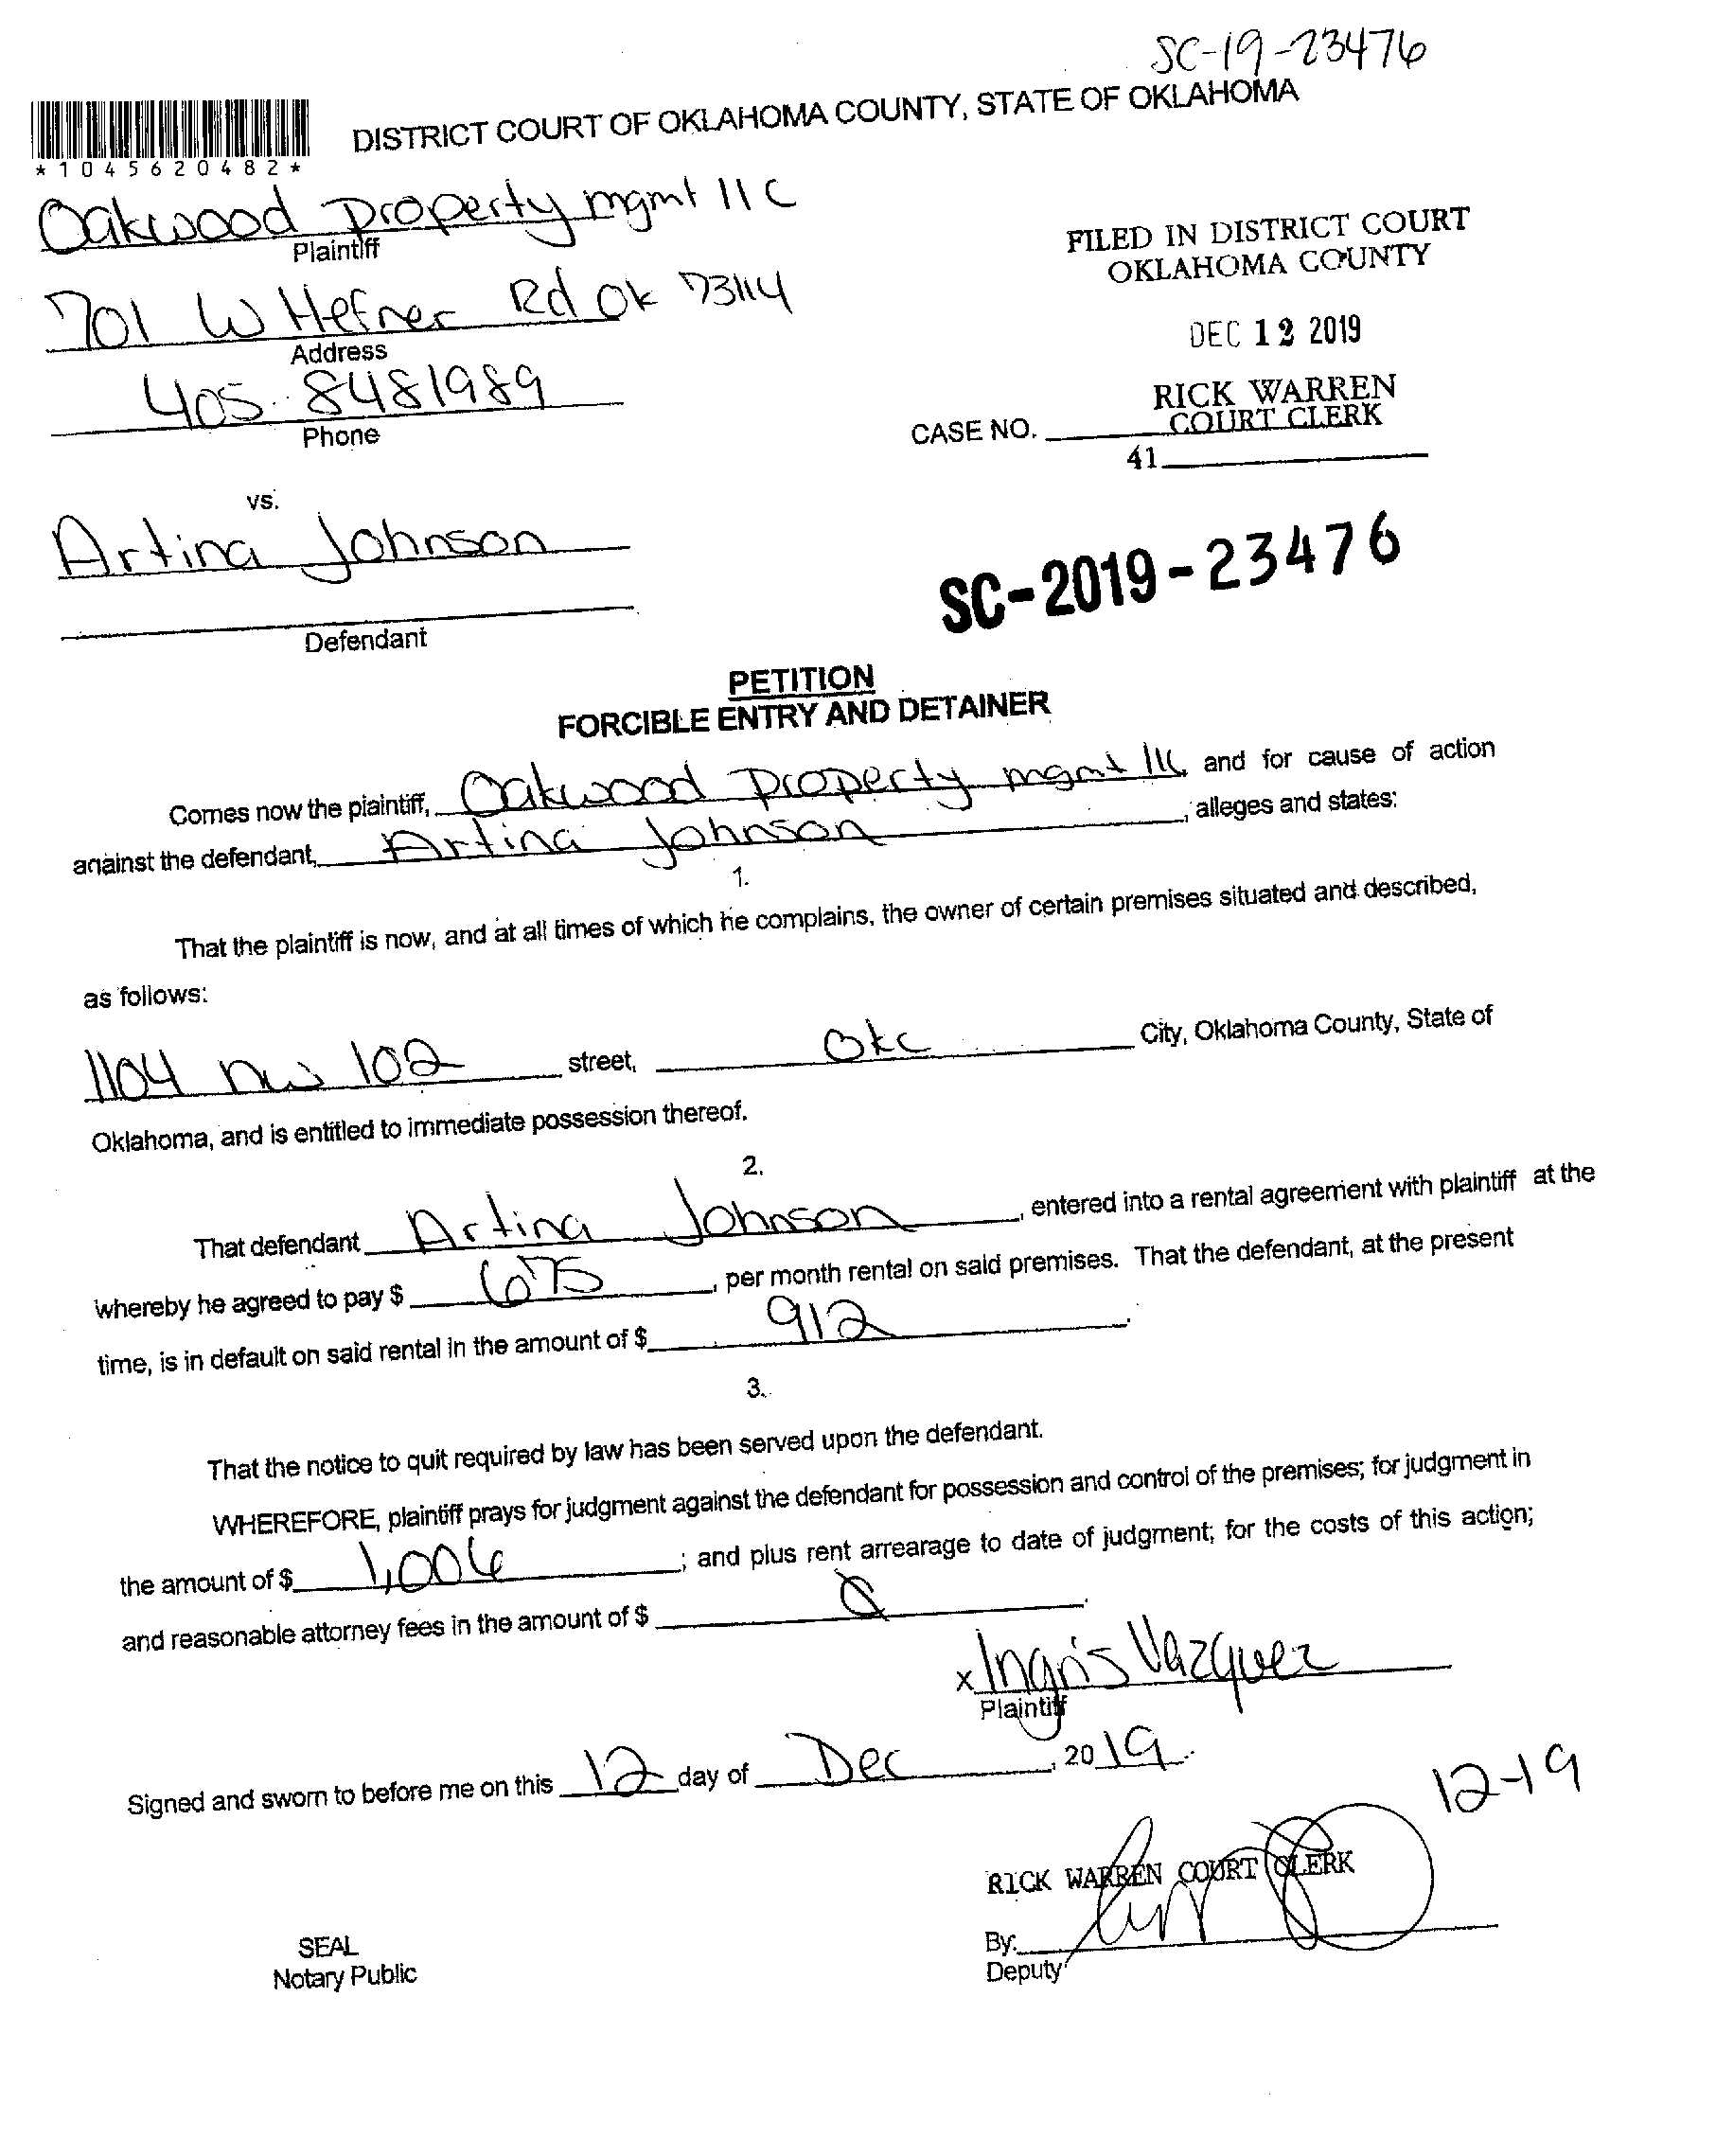 SC-19-23476
DISTRICT COURT OF OKLAHOMA COUNTY, STATE OF OKLAHOMA
*1045620482*
Oakwood Property mgmt llc
Plaintiff
701 W Hefner Rd Ok 73114
Address
405 8481989
Phone
FILED IN DISTRICT COURT
OKLAHOMA COUNTY
DEC 12 2019
RICK WARREN
COURT CLERK
CASE NO.
41
vs.
Artina Johnson
Defendant
SC-2019-23476
PETITION
FORCIBLE ENTRY AND DETAINER
Comes now the plaintiff, Oakwood Property mgmt llc, and for cause of action
against the defendant, Artina Johnson, alleges and states:
1.
That the plaintiff is now, and at all times of which he complains, the owner of certain premises situated and described,
as follows:
1104 nw 102 street, Okc City, Oklahoma County, State of
Oklahoma, and is entitled to immediate possession thereof.
2.
That defendant Artina Johnson, entered into a rental agreement with plaintiff at the
whereby he agreed to pay $ 675, per month rental on said premises. That the defendant, at the present
time, is in default on said rental in the amount of $ 912.
3.
That the notice to quit required by law has been served upon the defendant.
WHEREFORE, plaintiff prays for judgment against the defendant for possession and control of the premises; for judgment in
the amount of $ 1,006; and plus rent arrearage to date of judgment; for the costs of this action;
and reasonable attorney fees in the amount of $ 0.
x Ingris Vazquez
Plaintiff
Signed and sworn to before me on this 12 day of Dec, 2019.
12-19
RICK WARREN COURT CLERK
By:
Deputy
SEAL
Notary Public